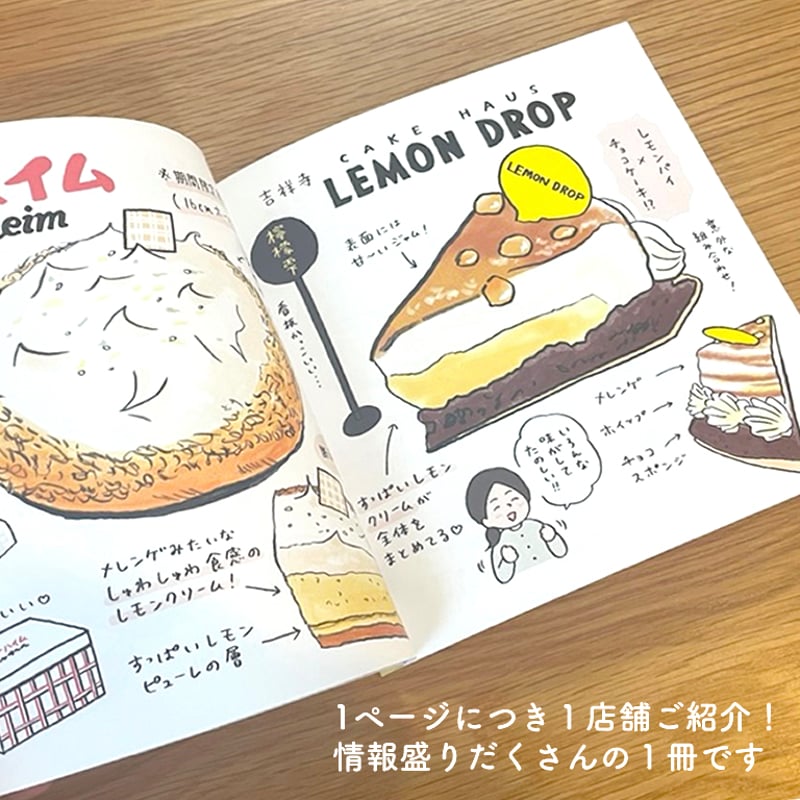 イム
eim
※期間限定
(16cm
メレンゲみたいな
しゅわしゅわ食感の
レモンクリーム!
すっぱいレモン
ピューレの層
いい♡
CAKE HAUS
吉祥寺
LEMON DROP
LEMON DROP
レモンパイ
×
チョコケーキ!?
意外な
組み合わせ!
表面には
甘〜いジャム!
檸檬雫
看板かっこいい…
メレンゲ
ホイップ
チョコ
スポンジ
すっぱいレモン
クリームが
全体を
まとめてる♡
いろんな
味がして
たのしい!!
1ページにつき1店舗ご紹介!
情報盛りだくさんの1冊です